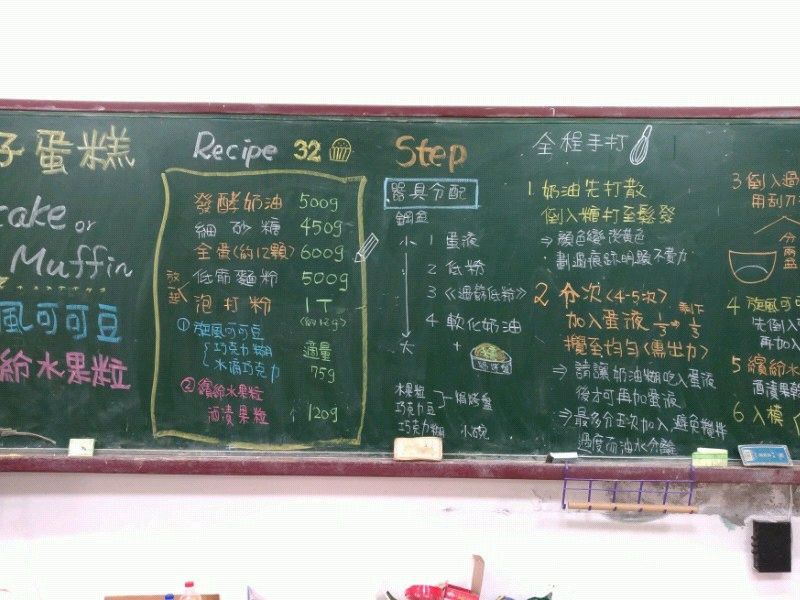 子蛋糕
cake or
Muffin
風可可豆
給水果粒
Recipe 32
發酵奶油 500g
細砂糖 450g
全蛋(約12顆) 600g
低筋麵粉 500g
泡打粉 1T
(約12g)
① 旋風可可豆
巧克力糊 適量
水滴巧克力 75g
② 繽紛水果粒
酒漬果粒 120g
Step
器具分配
鋼盆
小 1 蛋液
2 低粉
3 《過篩低粉》
4 軟化奶油
大 +
水果粒
巧克力豆
巧克力糊 小碗
全程手打
1. 奶油先打散
倒入糖打至鬆發
⇒ 顏色變淡黃色
劃過痕跡明顯不費力
2 分次(4-5次) 剩下
加入蛋液 1/3 → 1/3
攪至均勻(需出力)
⇒ 請讓奶油糊吃入蛋液
後才可再加蛋液
⇒ 最多分五次加入避免攪拌
過度而油水分離
3 倒入過
用刮刀
分兩盆
4 旋風可
先倒入
再加入
5 繽紛水
酒漬果
6 入模